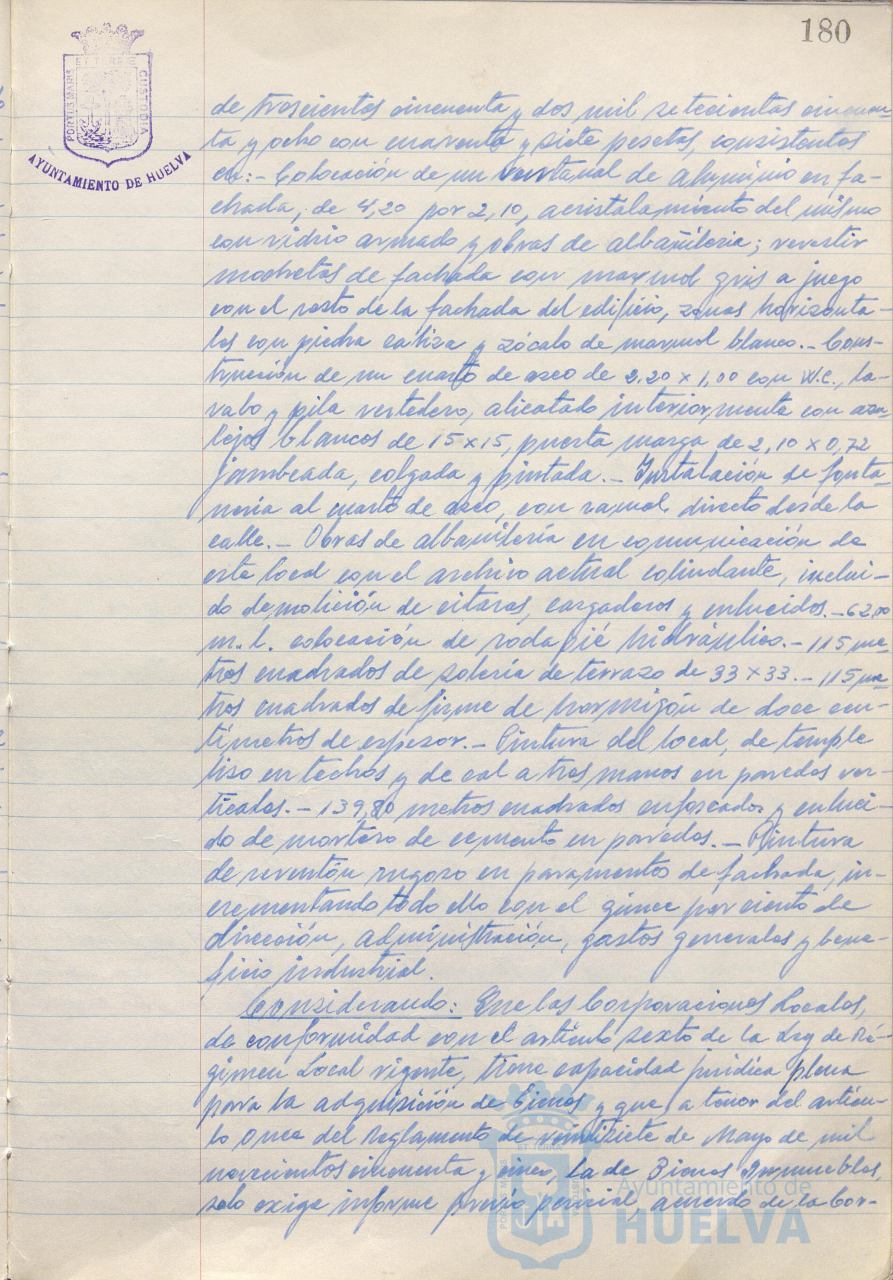 180
PORTUS MARIS ET TERRE CUSTODIA
AYUNTAMIENTO DE HUELVA
de trescientas cincuenta y dos mil setecientas cincuen-
ta y ocho con cuarenta y siete pesetas, consistentes
en:- Colocación de un ventanal de aluminio en fa-
chada, de 4,20 por 2,10, acristalamiento del mismo
con vidrio armado y obras de albañileria; revestir
mochetas de fachada con marmol gris a juego
con el resto de la fachada del edificio, zonas horizonta-
les con piedra caliza y zócalo de marmol blanco.- Cons-
trucción de un cuarto de aseo de 2.20 x 1,00 con W.C., la-
vabo y pila vertedero, alicatado interiormente con azu-
lejos blancos de 15x15, puerta marga de 2,10 x 0,72
jambeada, colgada y pintada.- Instalación de fonta-
neria al cuarto de aseo, con ramal directo desde la
calle.- Obras de albañilería en comunicación de
este local con el archivo actual colindante, inclui-
do demolición de citaras, cargaderos y enlucidos.- 62,00
m.l. colocación de rodapié hidráulico.- 115 me-
tros cuadrados de solería de terrazo de 33 x 33.- 115 me-
tros cuadrados de firme de hormigón de doce cen-
tímetros de espesor.- Pintura del local, de temple
liso en techos y de cal a tres manos en paredes ver-
ticales.- 139,80 metros cuadrados enfoscado y enluci-
do de mortero de cemento en paredes.- Pintura
de reventón rugoso en paramentos de fachada, in-
crementando todo ello con el quince por ciento de
dirección, administración, gastos generales y bene-
ficio industrial.
Considerando: Que las Corporaciones Locales,
de conformidad con el artículo sexto de la Ley de Ré-
gimen Local vigente, tiene capacidad jurídica plena
para la adquisición de bienes y que, a tenor del artícu-
lo once del Reglamento de veintisiete de Mayo de mil
novecientos cincuenta y cinco, la de Bienes Inmuebles,
solo exige informe previo pericial, acuerdo de la Cor-
Ayuntamiento de
HUELVA